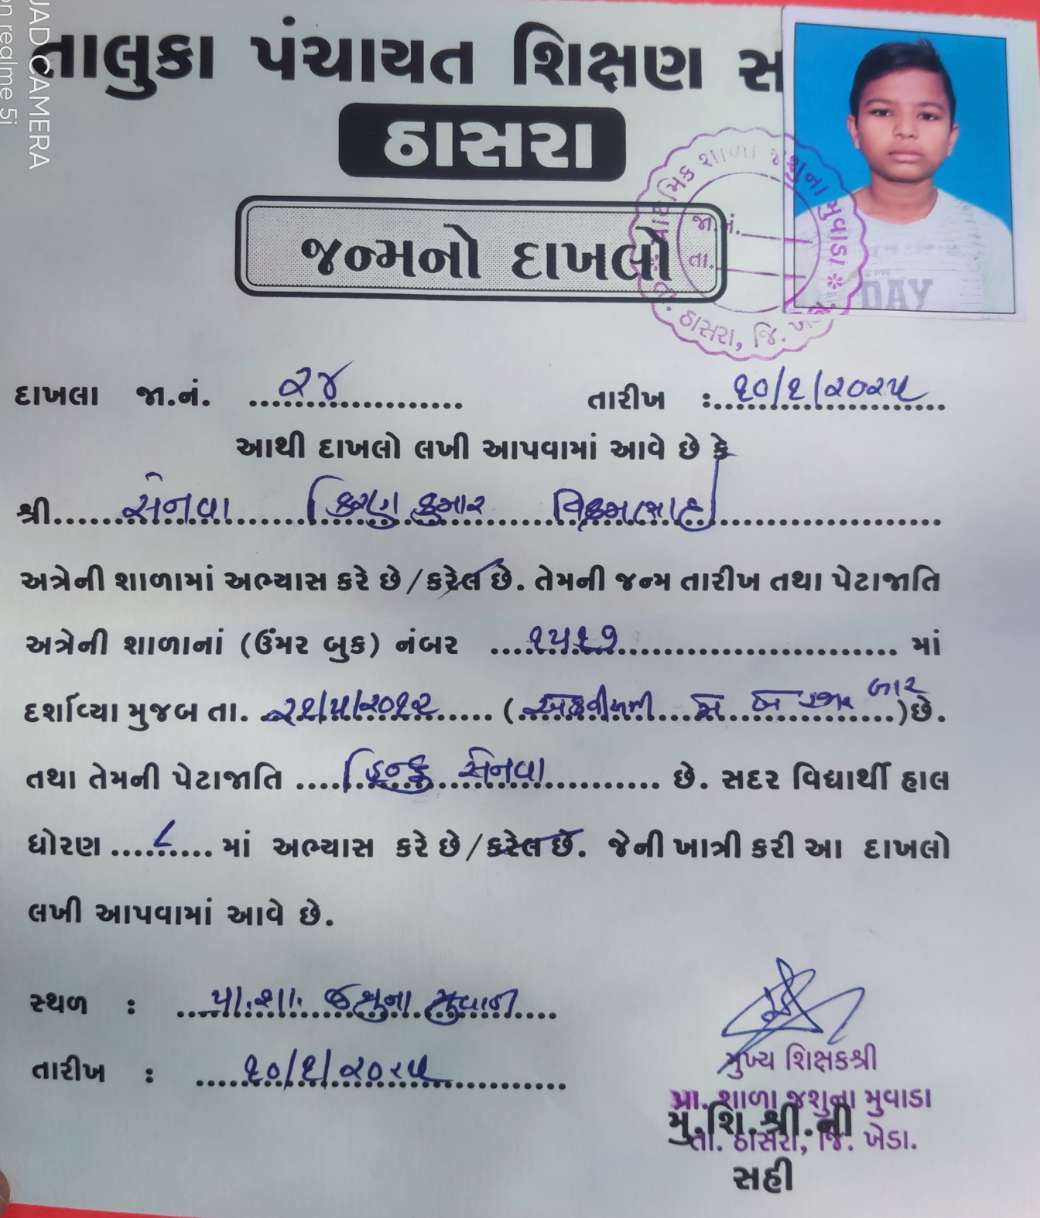 તાલુકા પંચાયત શિક્ષણ સ
ઠાસરા
જન્મનો દાખલો
પ્રાથમિક શાળા જશુના મુવાડા * તા. ઠાસરા, જિ. ખે
જા.નં.
તા.
DAY
દાખલા જા.નં. ૨૪ તારીખ : ૧૦/૧/૨૦૨૫
આથી દાખલો લખી આપવામાં આવે છે કે
શ્રી સેનવા કિરણકુમાર વિક્રમભાઈ
અત્રેની શાળામાં અભ્યાસ કરે છે/કરેલ છે. તેમની જન્મ તારીખ તથા પેટાજાતિ
અત્રેની શાળાનાં (ઉંમર બુક) નંબર ૧૫૧૭ માં
દર્શાવ્યા મુજબ તા. ૨૧/૫/૨૦૧૨ ( બાર ) છે.
તથા તેમની પેટાજાતિ હિન્દુ સેનવા છે. સદર વિદ્યાર્થી હાલ
ધોરણ ૮ માં અભ્યાસ કરે છે/કરેલ છે. જેની ખાત્રી કરી આ દાખલો
લખી આપવામાં આવે છે.
સ્થળ : પ્રા.શા. જશુના મુવાડા
તારીખ : ૧૦/૧/૨૦૨૫
મુખ્ય શિક્ષકશ્રી
પ્રા. શાળા જશુના મુવાડા
તા. ઠાસરા, જિ. ખેડા.
મુ.શિ.શ્રી.ની
સહી
UAD CAMERA
on realme 5i